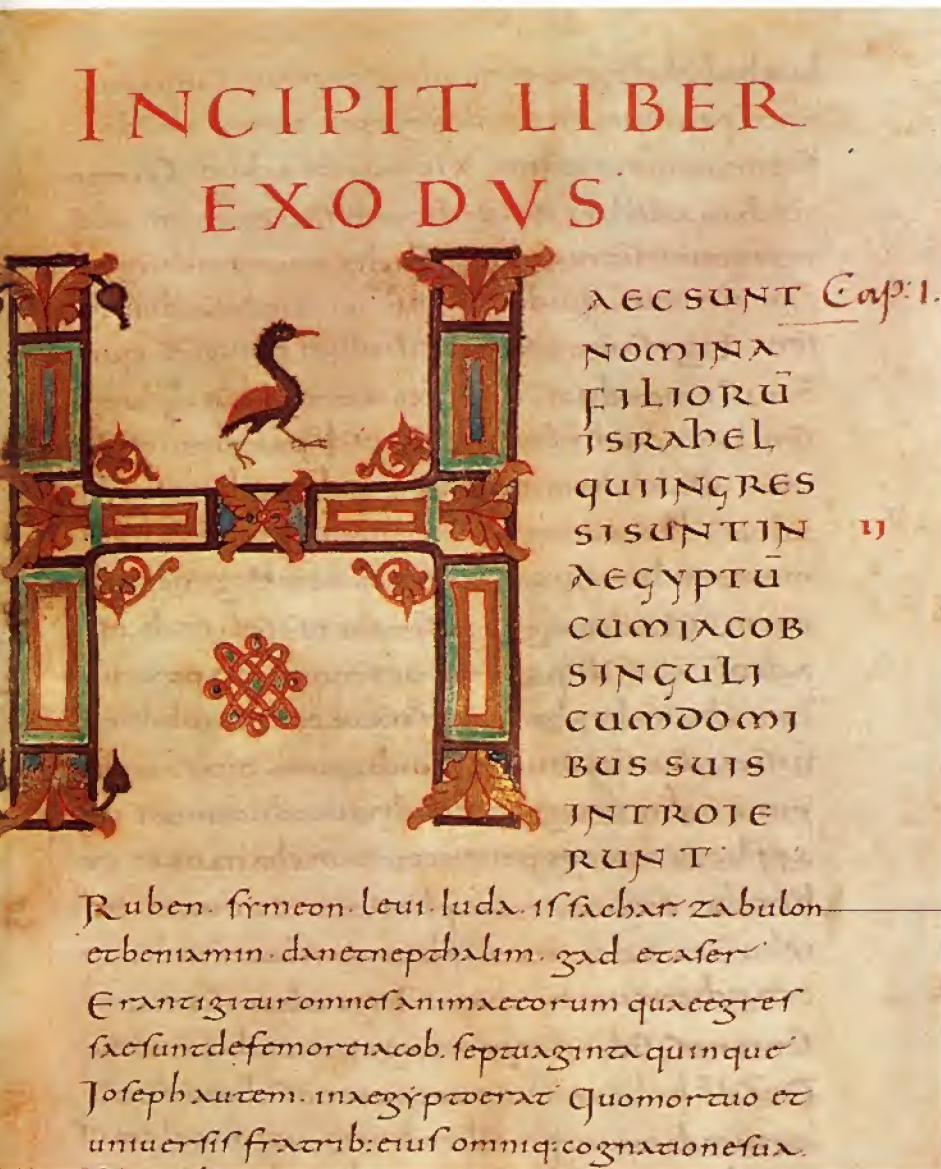 INCIPIT LIBER
EXODVS
HAEC SUNT Cap: 1.
NOMINA
FILIORŪ
ISRAhEL
QUIINGRES
SISUNTIN IJ
AEGYPTŪ
CUMIACOB
SINGULI
CUMDOMI
BUS SUIS
INTROIE
RUNT
Ruben· symeon· leui· iuda· issachar· zabulon
etbeniamin· danetnepthalim· gad etaser
Erantigituromnesanimaeeorum quaeegres
saesuntdefemoreiacob· septuaginta quinque
Ioseph autem· inaegyptoerat Quomortuo et
uniuersis fratrib: eius omniq: cognationesua·